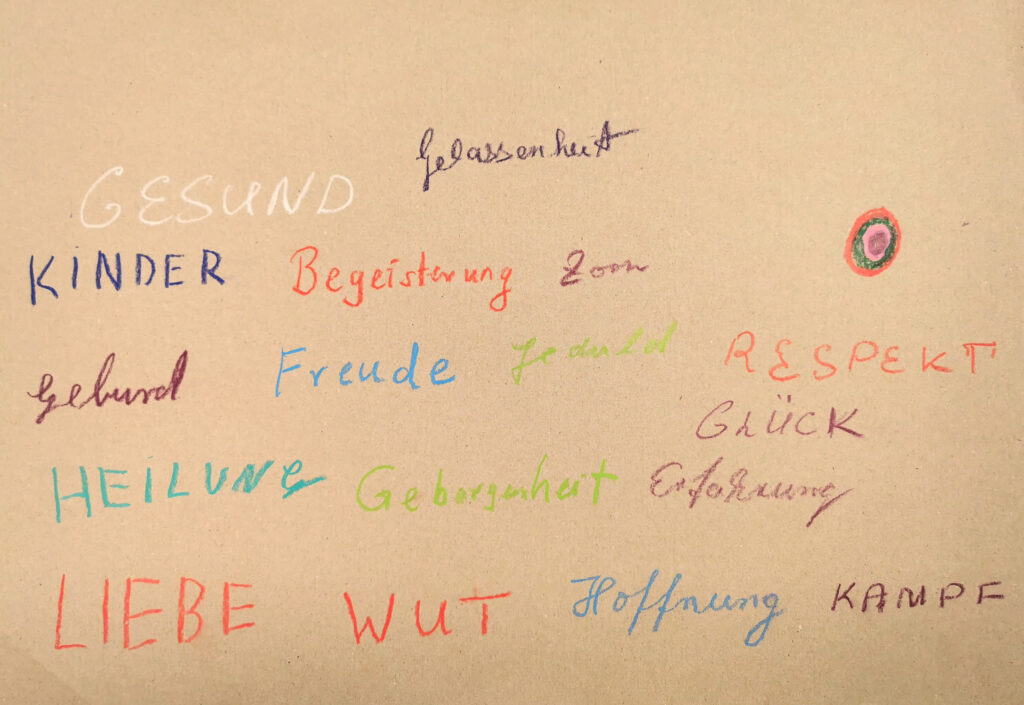 Gelassenheit
GESUND
KINDER Begeisterung Zorn
Freude Geduld RESPEKT
GLÜCK
HEILUNG Geborgenheit Erfahrung
LIEBE WUT Hoffnung KAMPF